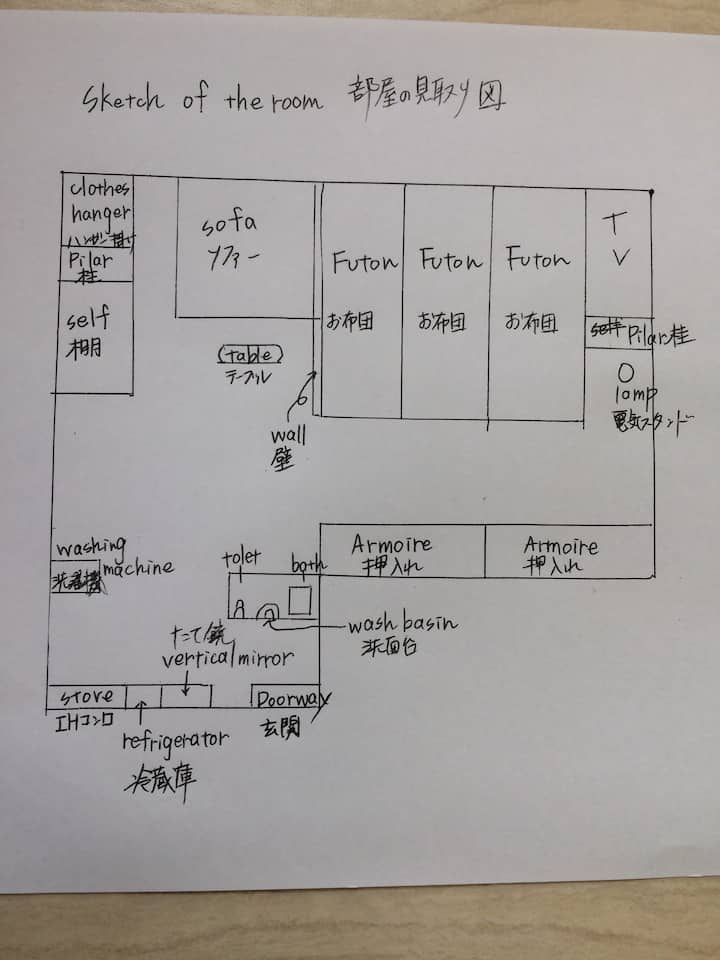 Sketch of the room 部屋の見取り図
clothes
hanger
ハンガー掛け
Pilar
柱
self
棚
sofa
ソファー
(table)
テーブル
wall
壁
Futon
お布団
Futon
お布団
Futon
お布団
T
V
Pilar柱
lamp
電気スタンド
washing
machine
洗濯機
tolet
bath
Armoire
押入れ
Armoire
押入れ
wash basin
洗面台
たて鏡
vertical mirror
Stove
IHコンロ
refrigerator
冷蔵庫
Doorway
玄関